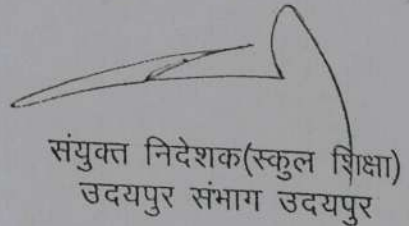 संयुक्त निदेशक(स्कुल शिक्षा)
उदयपुर संभाग उदयपुर